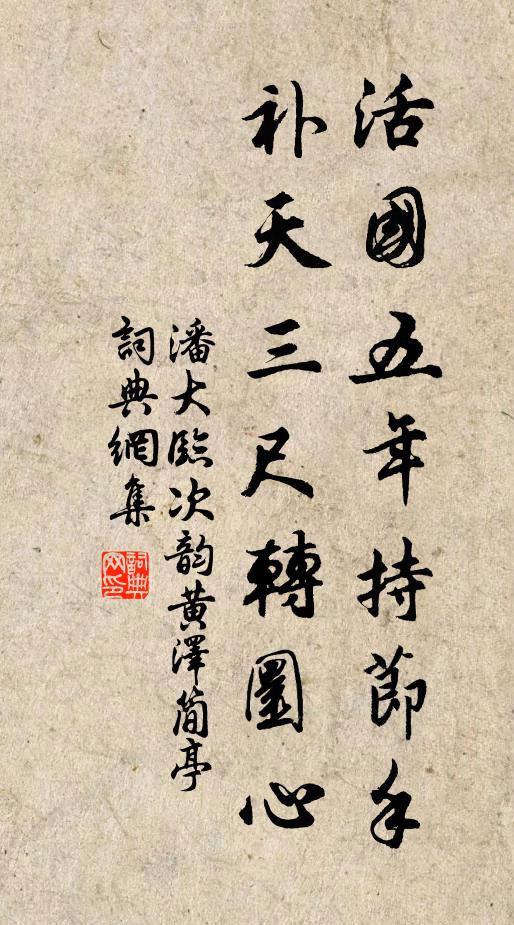 活國五年持節手
补天三尺轉圜心
潘大臨次韵黄澤簡亭
詞典網集
詞典網印